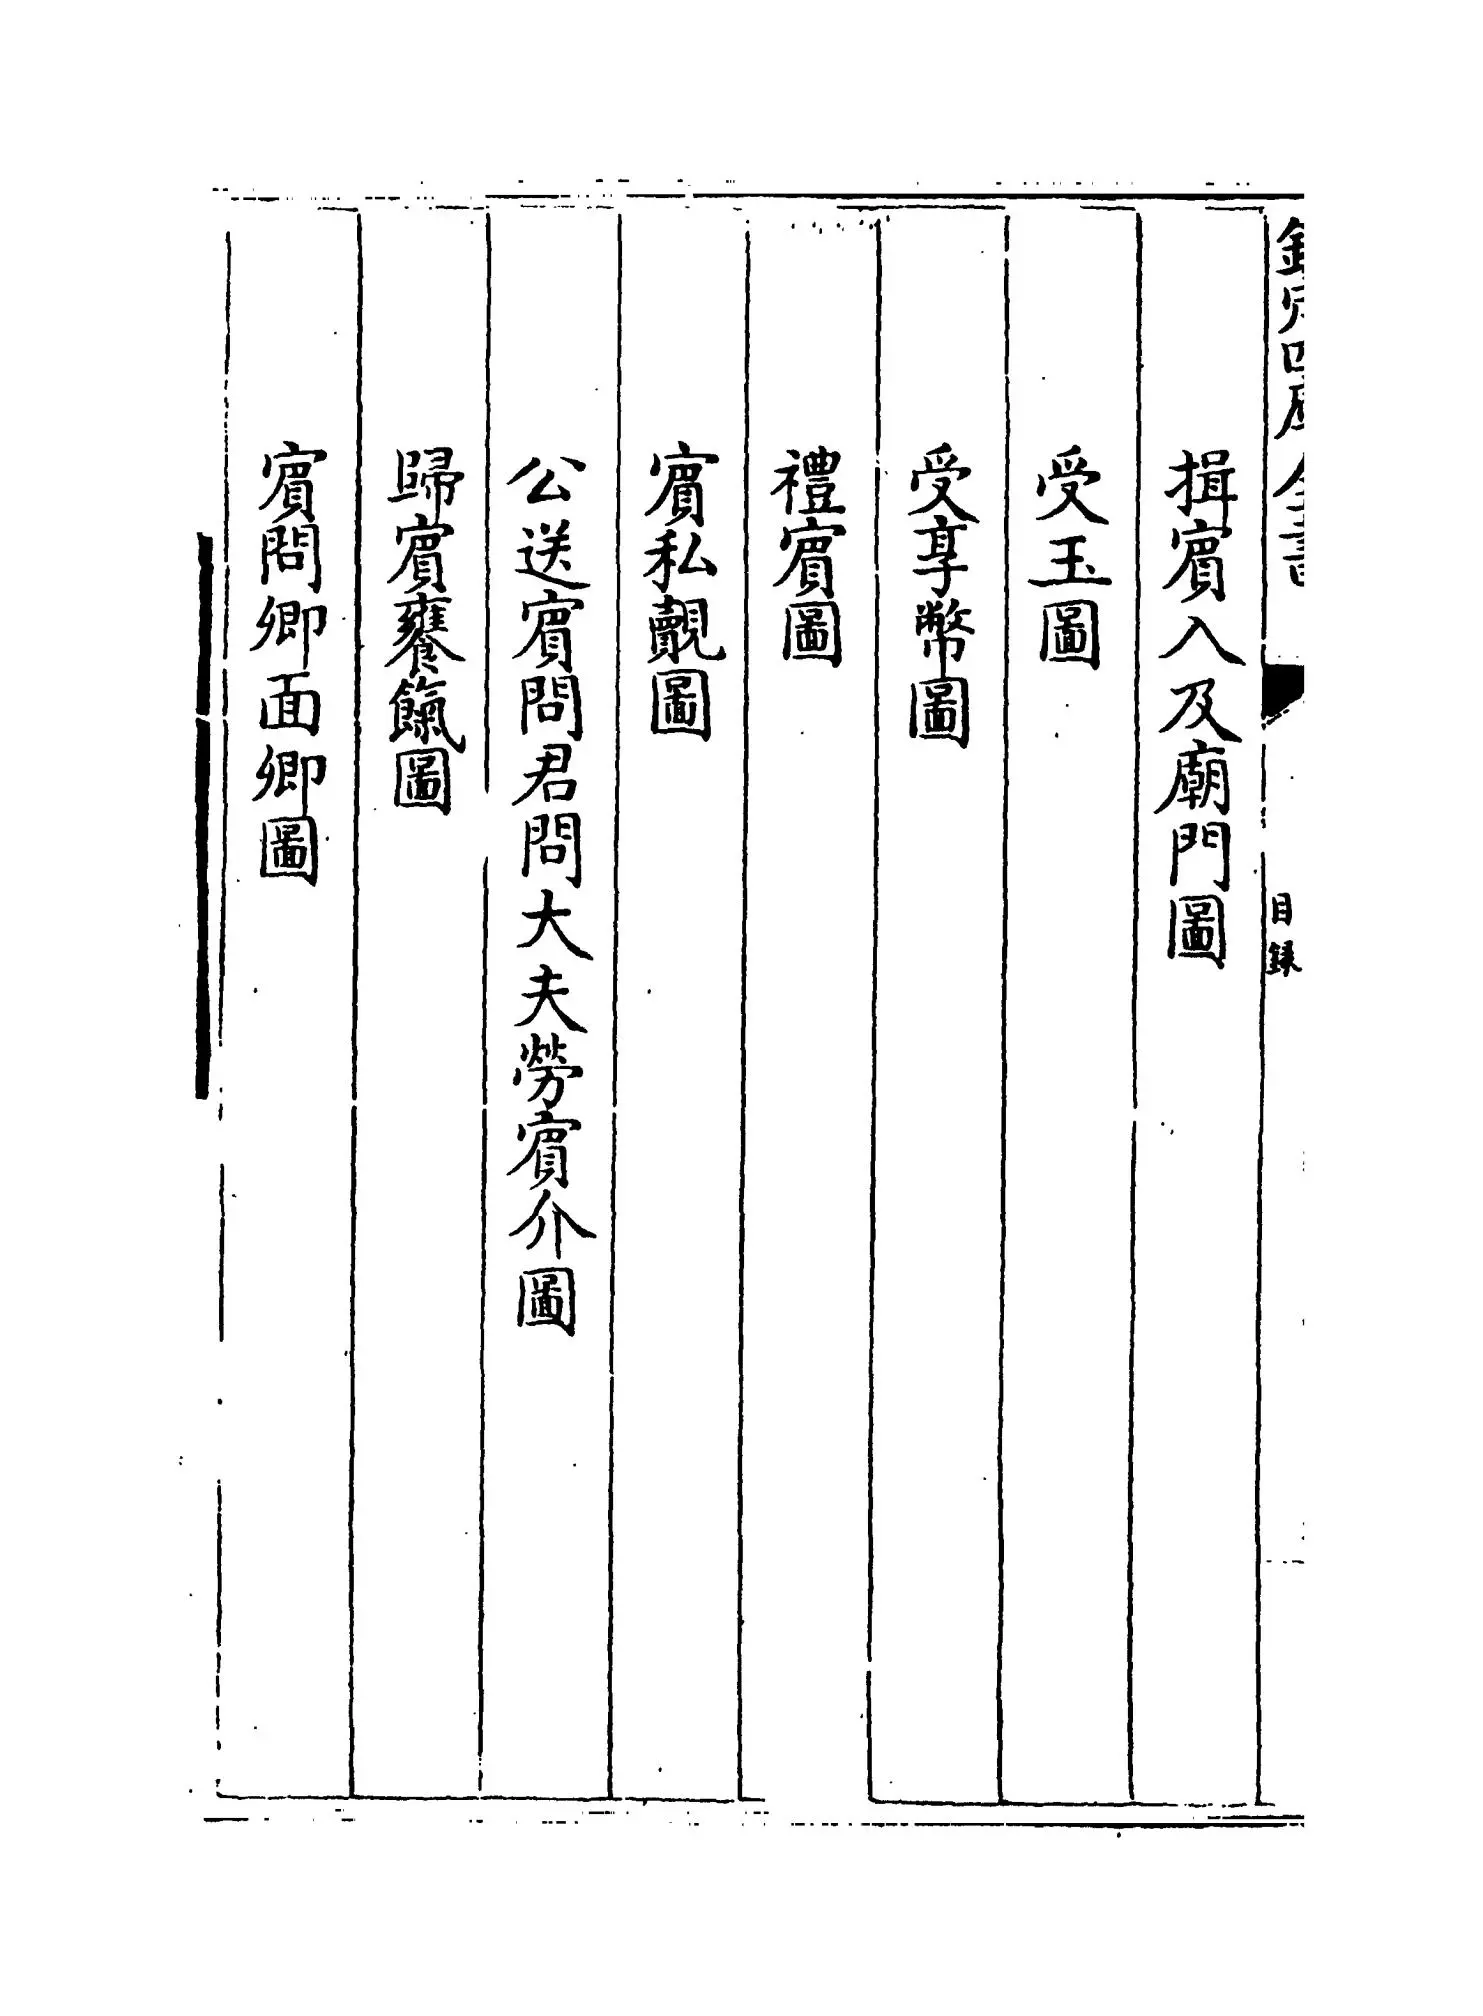 欽定四庫全書
目録
揖賔入及廟門圖
受玉圖
受享幣圖
禮賔圖
賔私覿圖
公送賔問君問大夫勞賔介圖
歸賔饔餼圖
賔問卿面卿圖